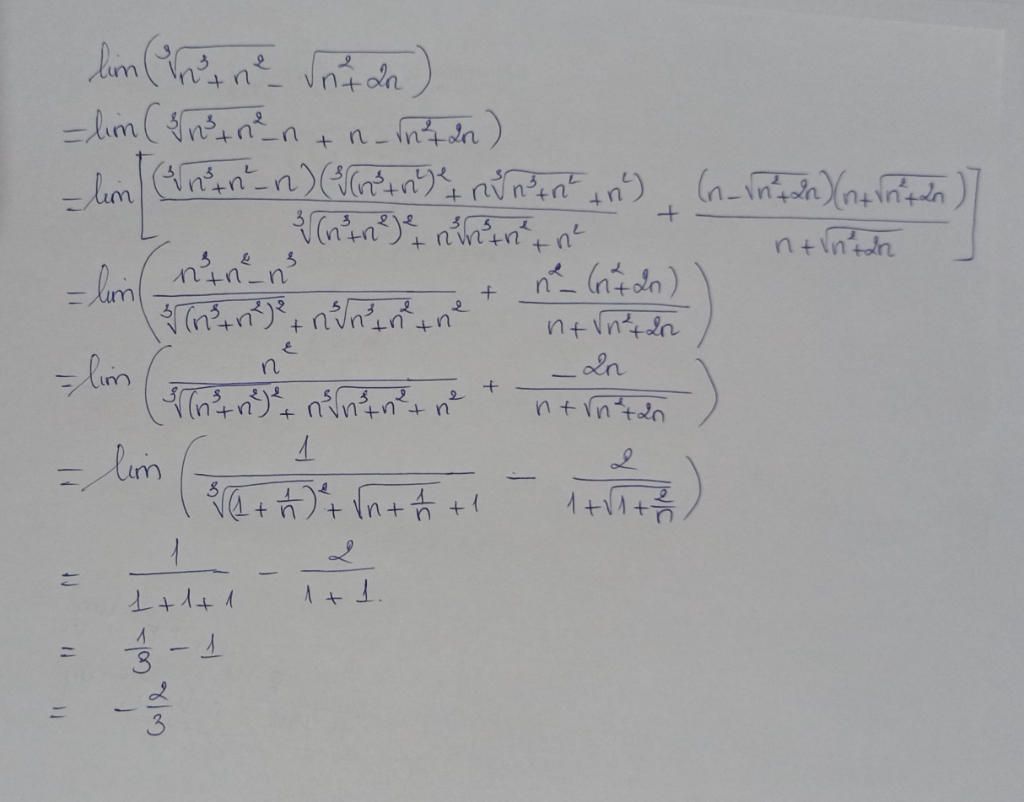 lim(∛(n³+n²) - √(n²+2n))
= lim(∛(n³+n²) - n + n - √(n²+2n))
= lim[((∛(n³+n²) - n)(∛((n³+n²)²) + n∛(n³+n²) + n²))/(∛((n³+n²)²) + n∛(n³+n²) + n²) + ((n - √(n²+2n))(n + √(n²+2n)))/(n + √(n²+2n))]
= lim((n³+n²-n³)/(∛((n³+n²)²) + n∛(n³+n²) + n²) + (n² - (n²+2n))/(n + √(n²+2n)))
= lim(n²/(∛((n³+n²)²) + n∛(n³+n²) + n²) + (-2n)/(n + √(n²+2n)))
= lim(1/(∛((1+1/n)²) + √(n+1/n) + 1) - 2/(1+√(1+2/n)))
= 1/(1+1+1) - 2/(1+1.)
= 1/3 - 1
= -2/3